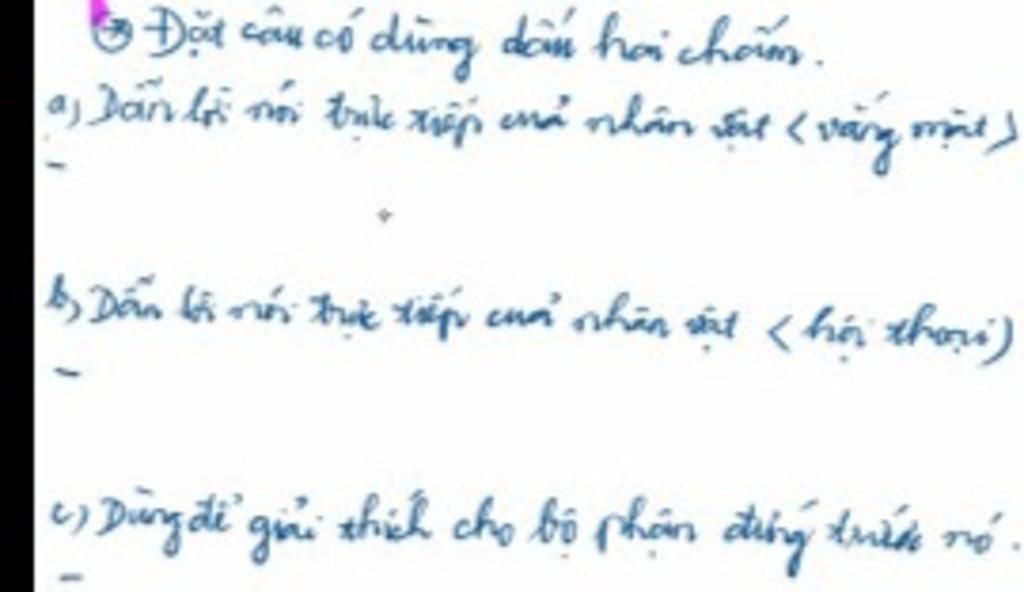 Đặt câu có dùng dấu hai chấm.
a) Dẫn lời nói trực tiếp của nhân vật (vắng mặt)
-
b) Dẫn lời nói trực tiếp của nhân vật (hội thoại)
-
c) Dùng để giải thích cho bộ phận đứng trước nó.
-